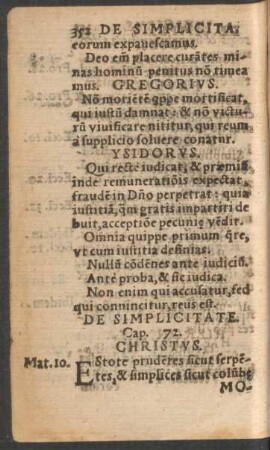 352 DE SIMPLICITA.
eorum expauescamus.
Deo em̃ placere curãtes mi-
nas hominũ penitus nõ timea
mus. GREGORIVS.
Nõ moriẽtẽ qppe mortificat,
qui iustũ damnat: & nõ victu-
rũ viuificare nititur, qui reum
a supplicio soluere conatur.
YSIDORVS.
Qui recte iudicat, & præmia
inde remuneratiõis expectat,
fraudẽ in Dño perpetrat: quia
iustitiã, q̃m gratis impartiri de
buit, acceptiõe pecunię vẽdit.
Omnia quippe primum q̃re,
vt cum iustitia definias.
Nullũ cõdẽnes ante iudiciũ.
Ante proba, & sic iudica.
Non enim qui accusatur, sed
qui conuincitur, reus est.
DE SIMPLICITATE.
Cap. 72.
CHRISTVS.
Mat. 10. EStote prudẽtes sicut serpẽ-
tes, & simplices sicut colũbę
MO-